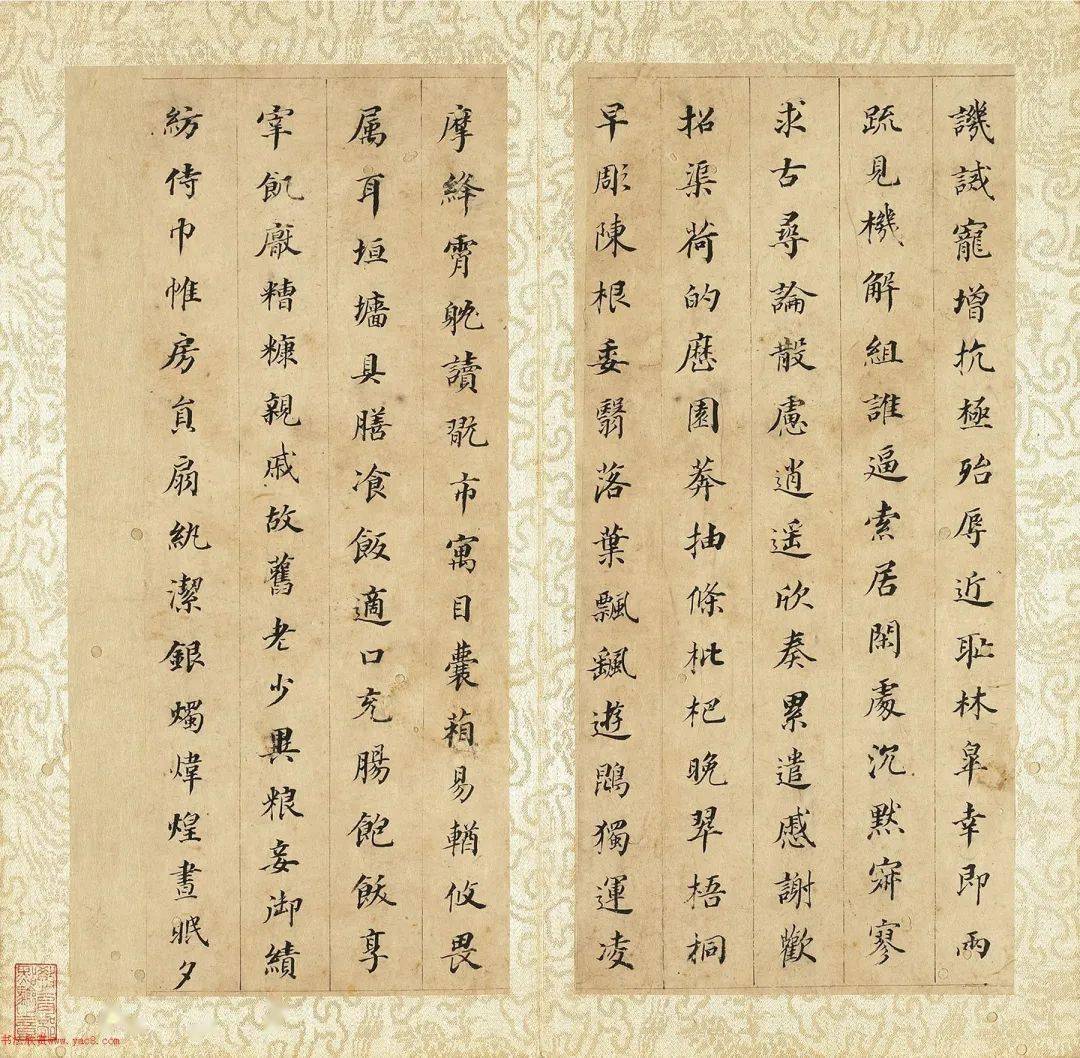 譏誡寵增抗極殆辱近恥林皐幸即兩
疏見機解組誰逼索居閑處沉默寂寥
求古尋論散慮逍遥欣奏累遣慼謝歡
招渠荷的歷園莽抽條枇杷晚翠梧桐
早彫陳根委翳落葉飄颻遊鵾獨運凌
摩絳霄躭讀翫市寓目囊葙易輶攸畏
属耳垣墻具膳飡飯適口充腸飽飫享
宰飢厭糟糠親戚故舊老少異粮妾御績
紡侍巾帷房貟扇紈潔銀燭煒煌晝眠夕
书法欣赏www.yac8.com